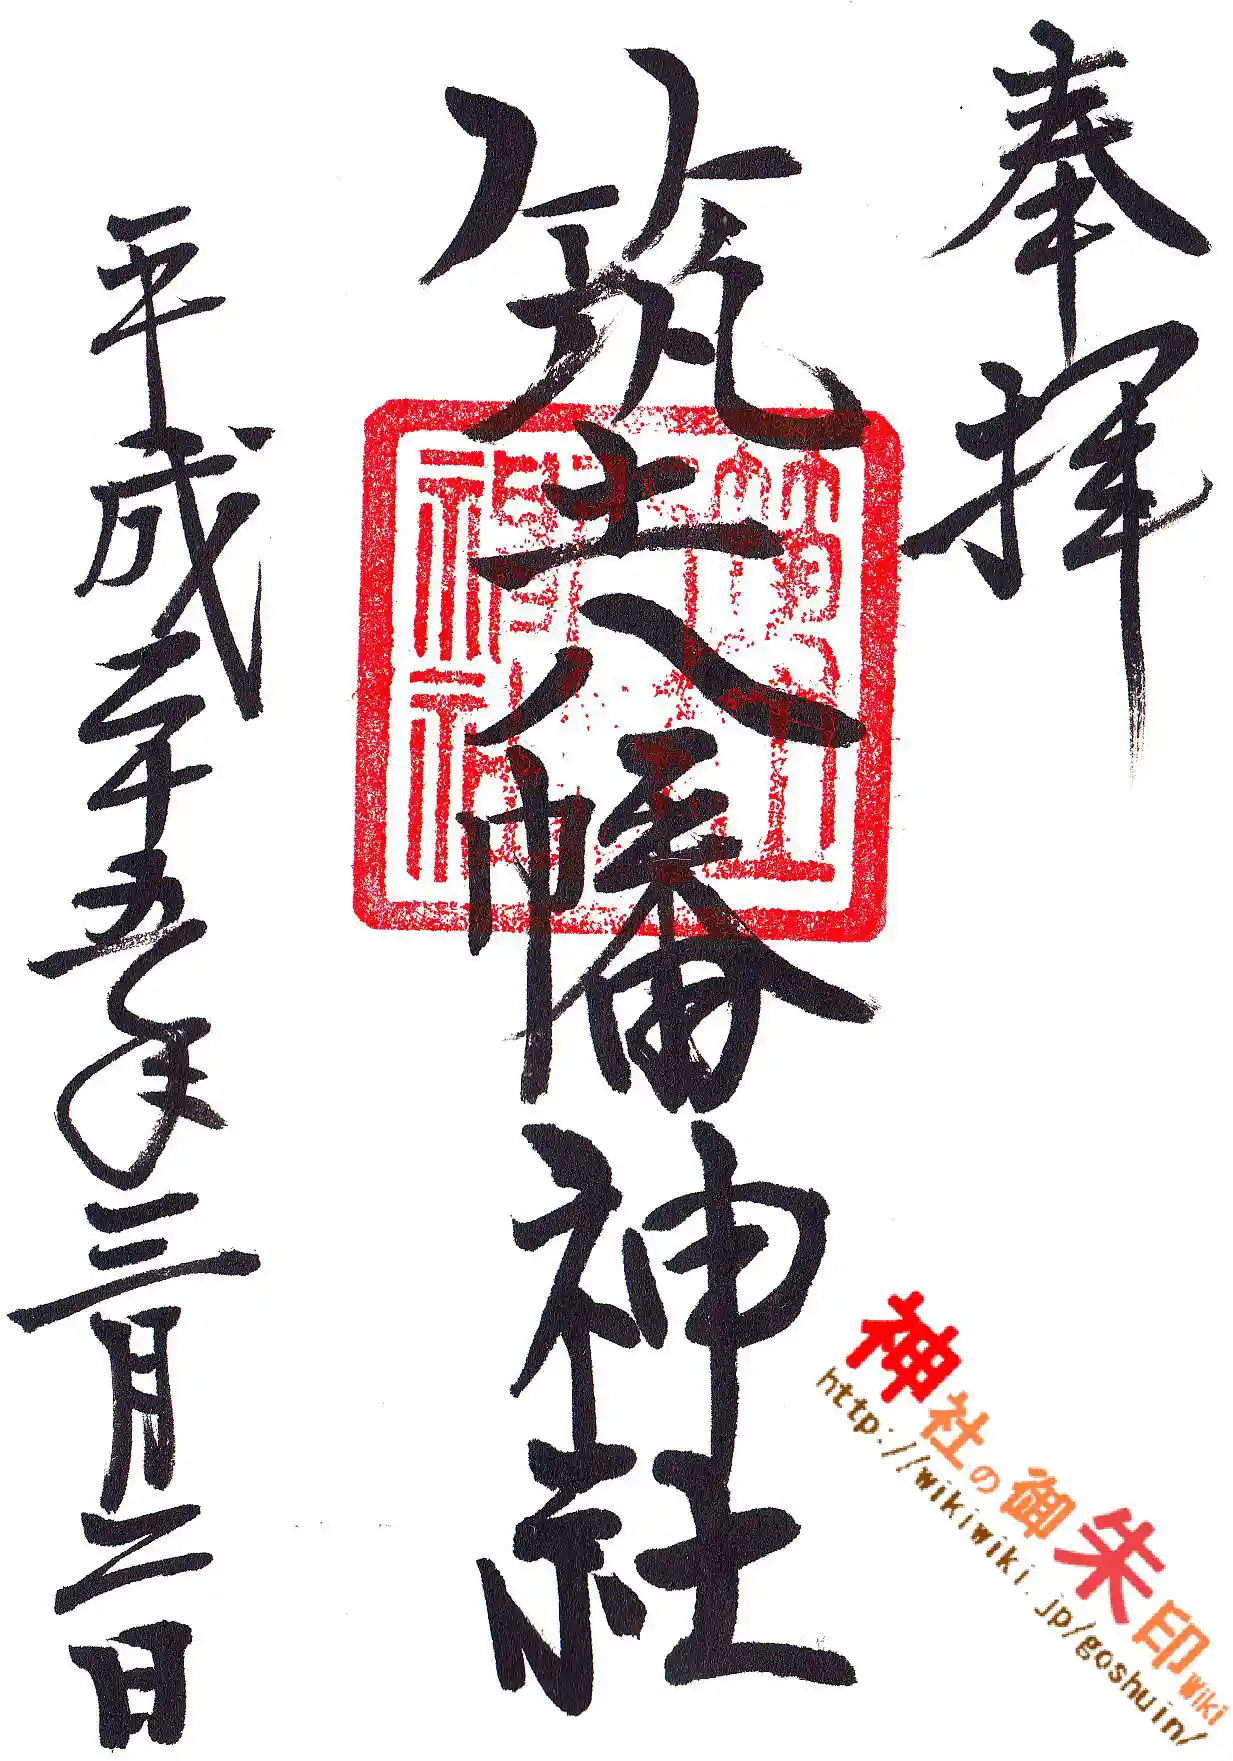 奉拝
筑土八幡神社
平成二十五年三月二日
神社の御朱印Wiki
http://wikiwiki.jp/goshuin/